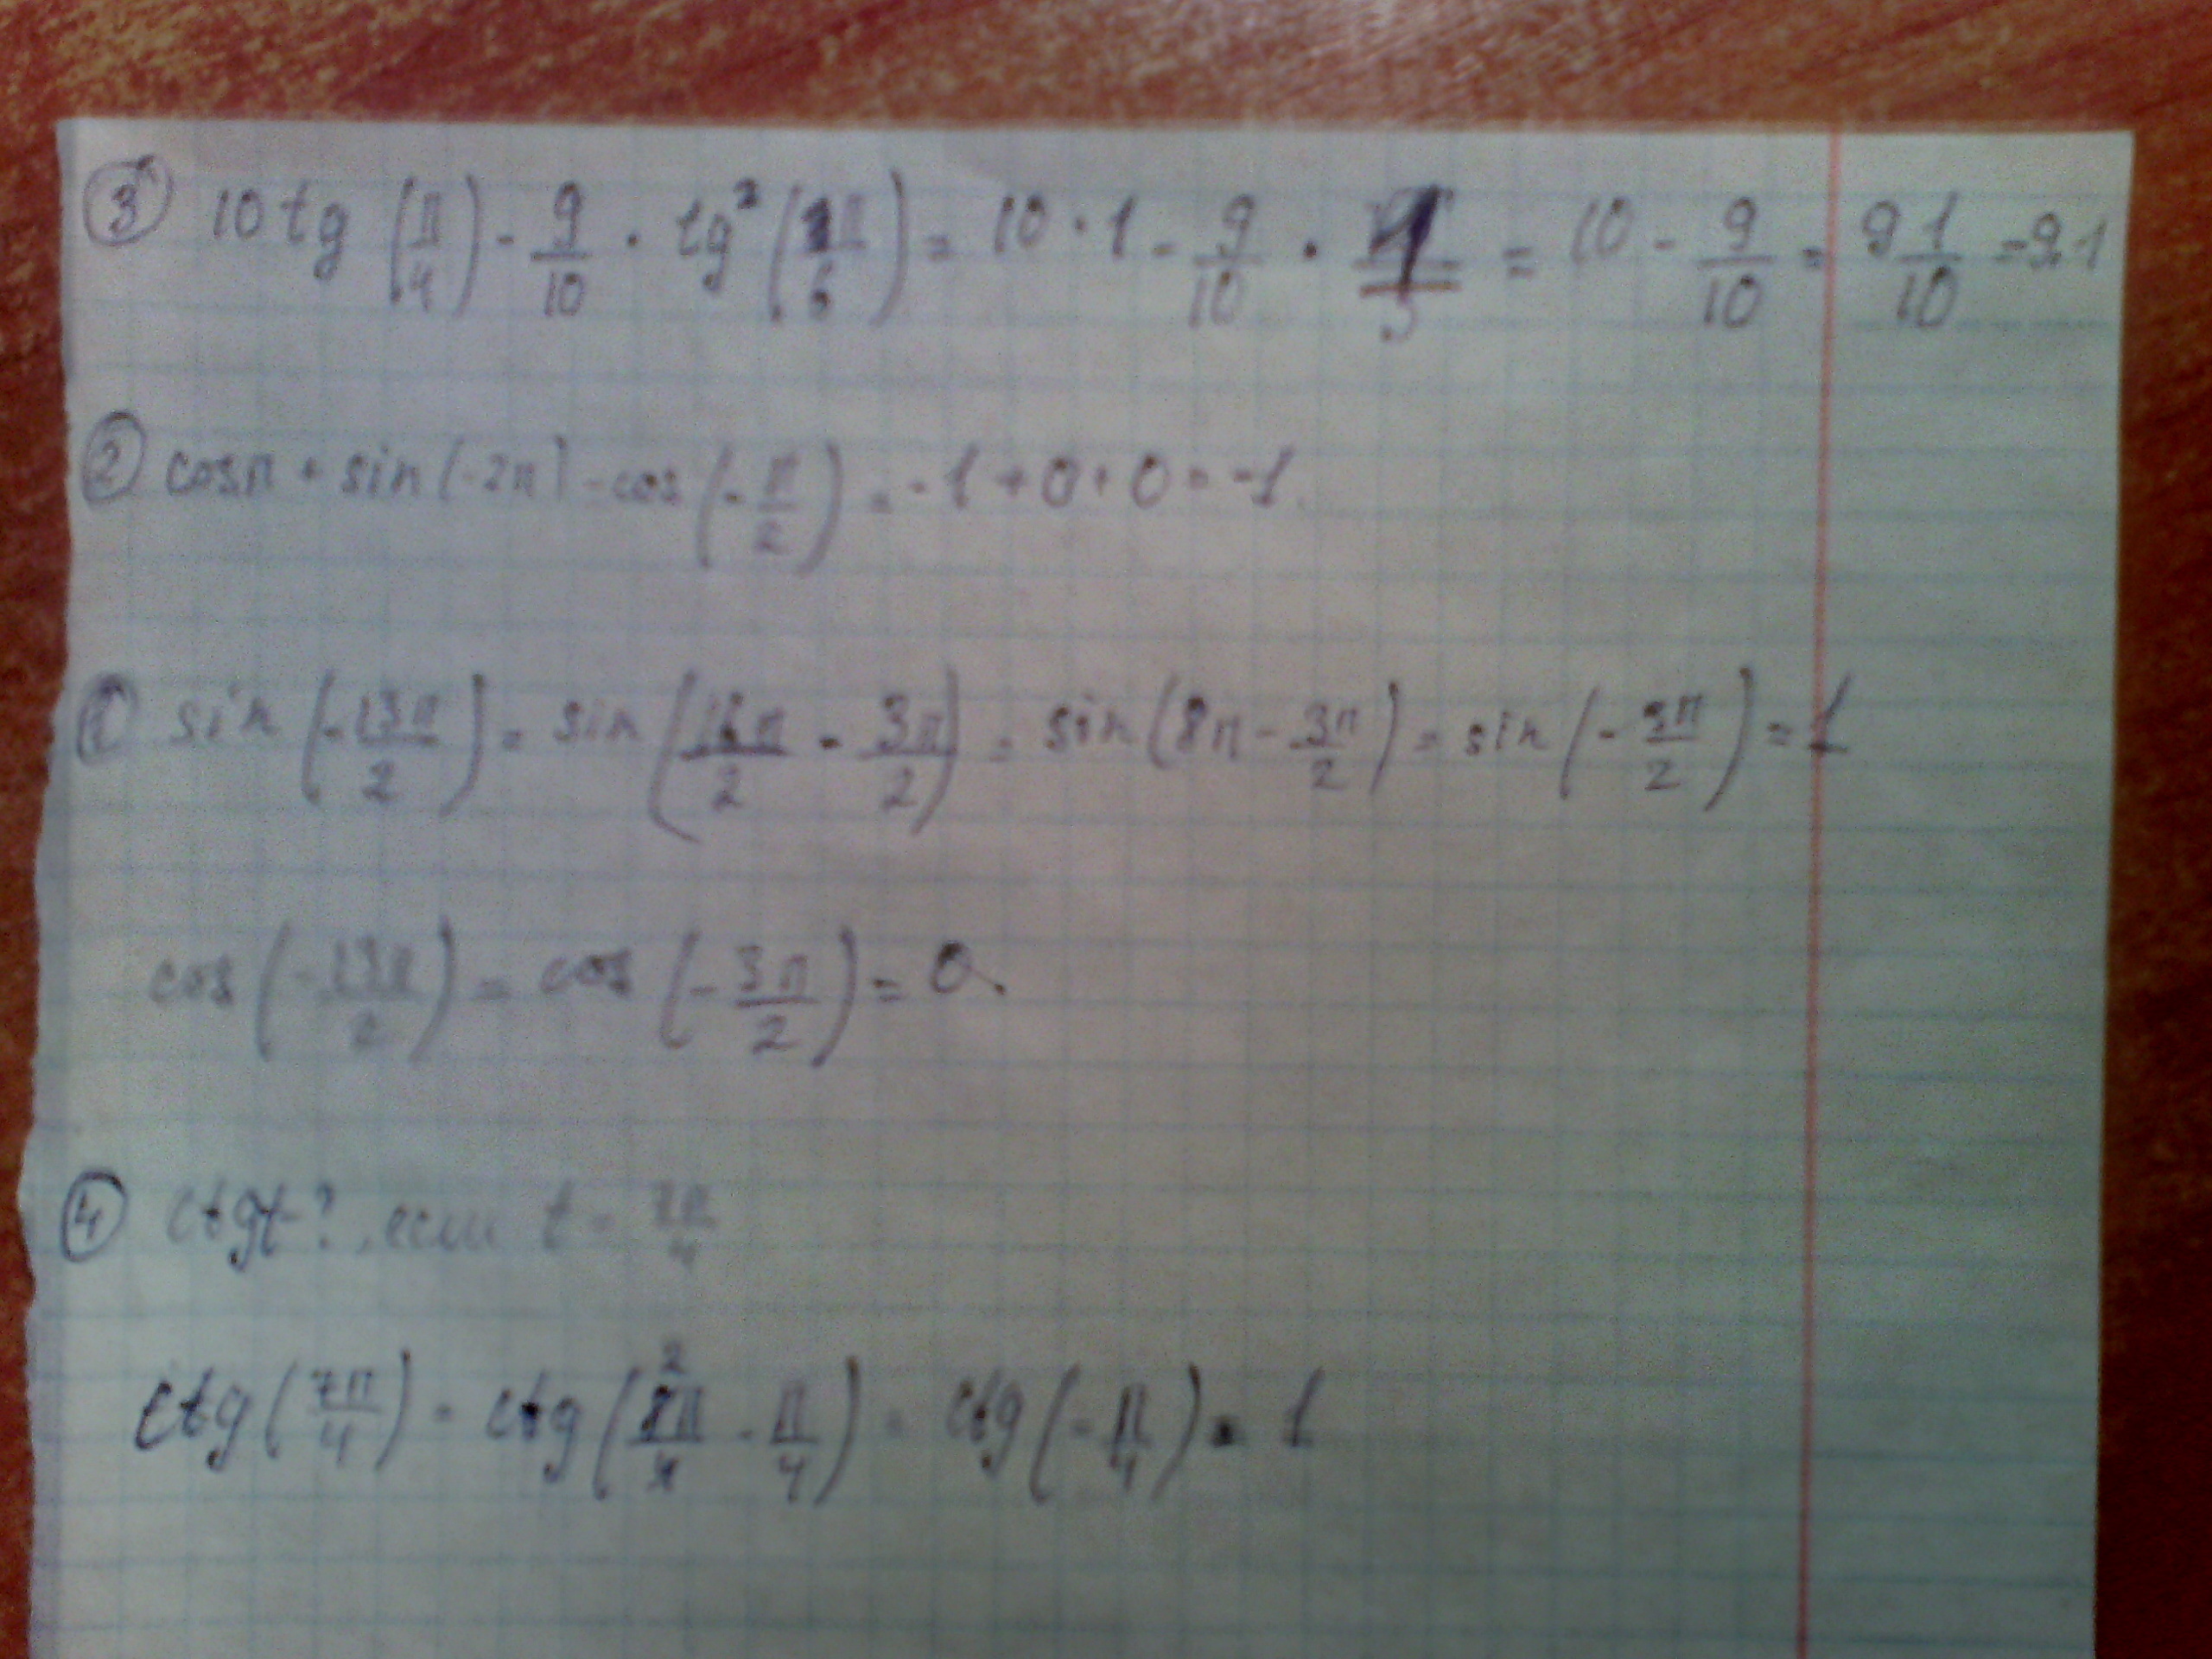 ③ 10 tg (π/4) - 9/10 · tg² (π/6) = 10 · 1 - 9/10 · 1/3 = 10 - 9/10 = 9 1/10 = 9.1
② cosπ + sin(-2π) - cos(-π/2) = -1 + 0 + 0 = -1.
① sin(-13π/2) = sin(16π/2 - 3π/2) = sin(8π - 3π/2) = sin(-3π/2) = 1
cos(-13π/2) = cos(-3π/2) = 0.
④ ctgt-?, если t = 7π/4
ctg(7π/4) = ctg(8π/4 - π/4) = ctg(-π/4) = 1